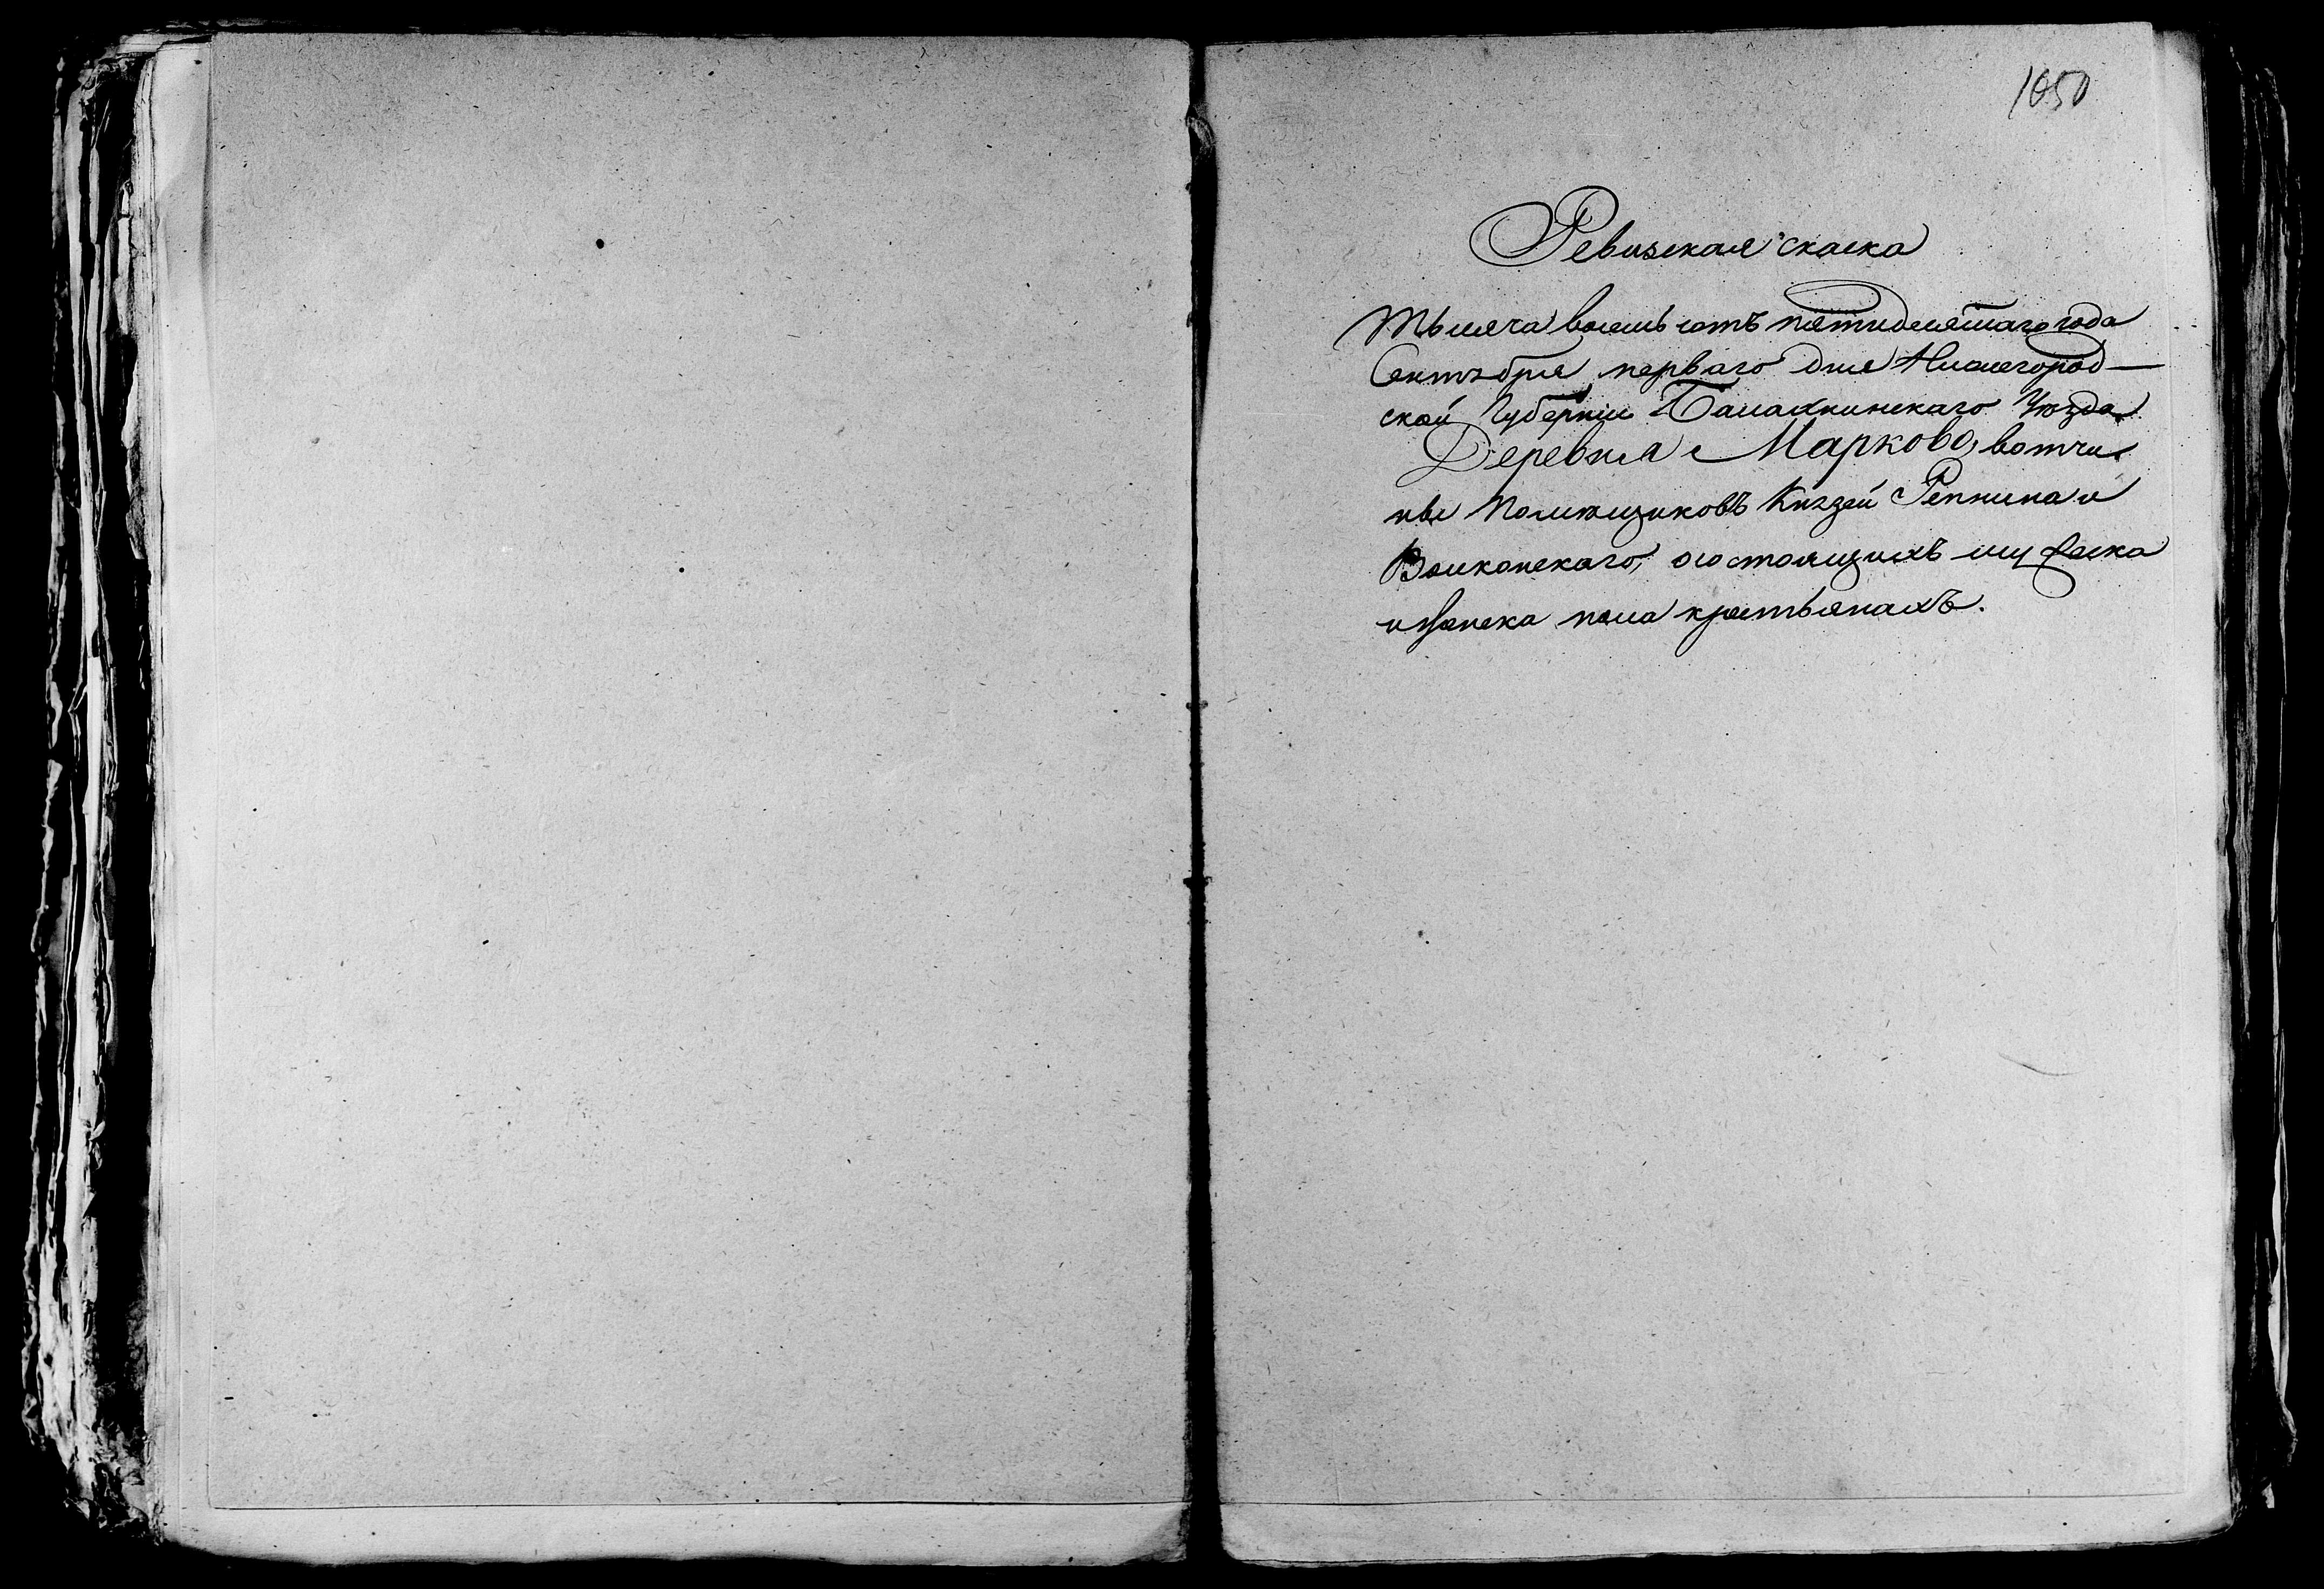 1050
Ревизская скаска
Тысяча восемь сотъ пятидесятаго года
Сентября перваго дня Нижегород-
ской Губерніи Балахнинскаго Уѣзда
Деревня Марково, вотчи-
ны Помѣщиковъ Князей Репнина и
Волконскаго, о состоящихъ мужеска
и женска пола крестьянахъ.